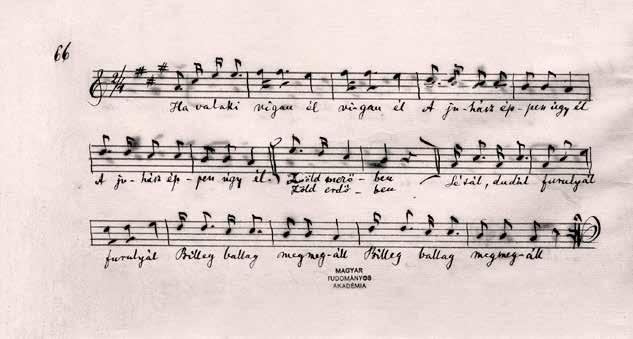 66
2/4
Ha valaki vigan él vi-gan él A ju-hász ép-pen úgy él
A ju-hász ép-pen úgy él. Zöld mező-ben Sétál, dudúl furulyál
Zöld erdő-ben
furulyál Billeg ballag megmeg-áll Billeg ballag megmeg-áll
MAGYAR
TUDOMÁNYOS
AKADÉMIA